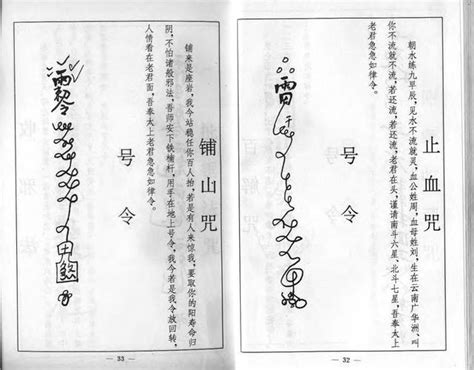 止血咒
朝水练九早辰,见水不流就灵,血公姓周,血母姓刘,生在云南广华洲、叫
你不流就不流,若还流,若还流,老君在头,谨请南斗六星、北斗七星,吾奉太上
老君急急如律令。
号令
— 32 —
铺山咒
铺来是座岩,我今站稳任你百人抬,若是有人来惊我,要取你的阳寿命归
阴,不怕诸般邪法,吾师安下铁楠杆,用手在地上号令,我今若是我令放回转,
人情看在老君面,吾奉太上老君急急如律令。
号令
— 33 —